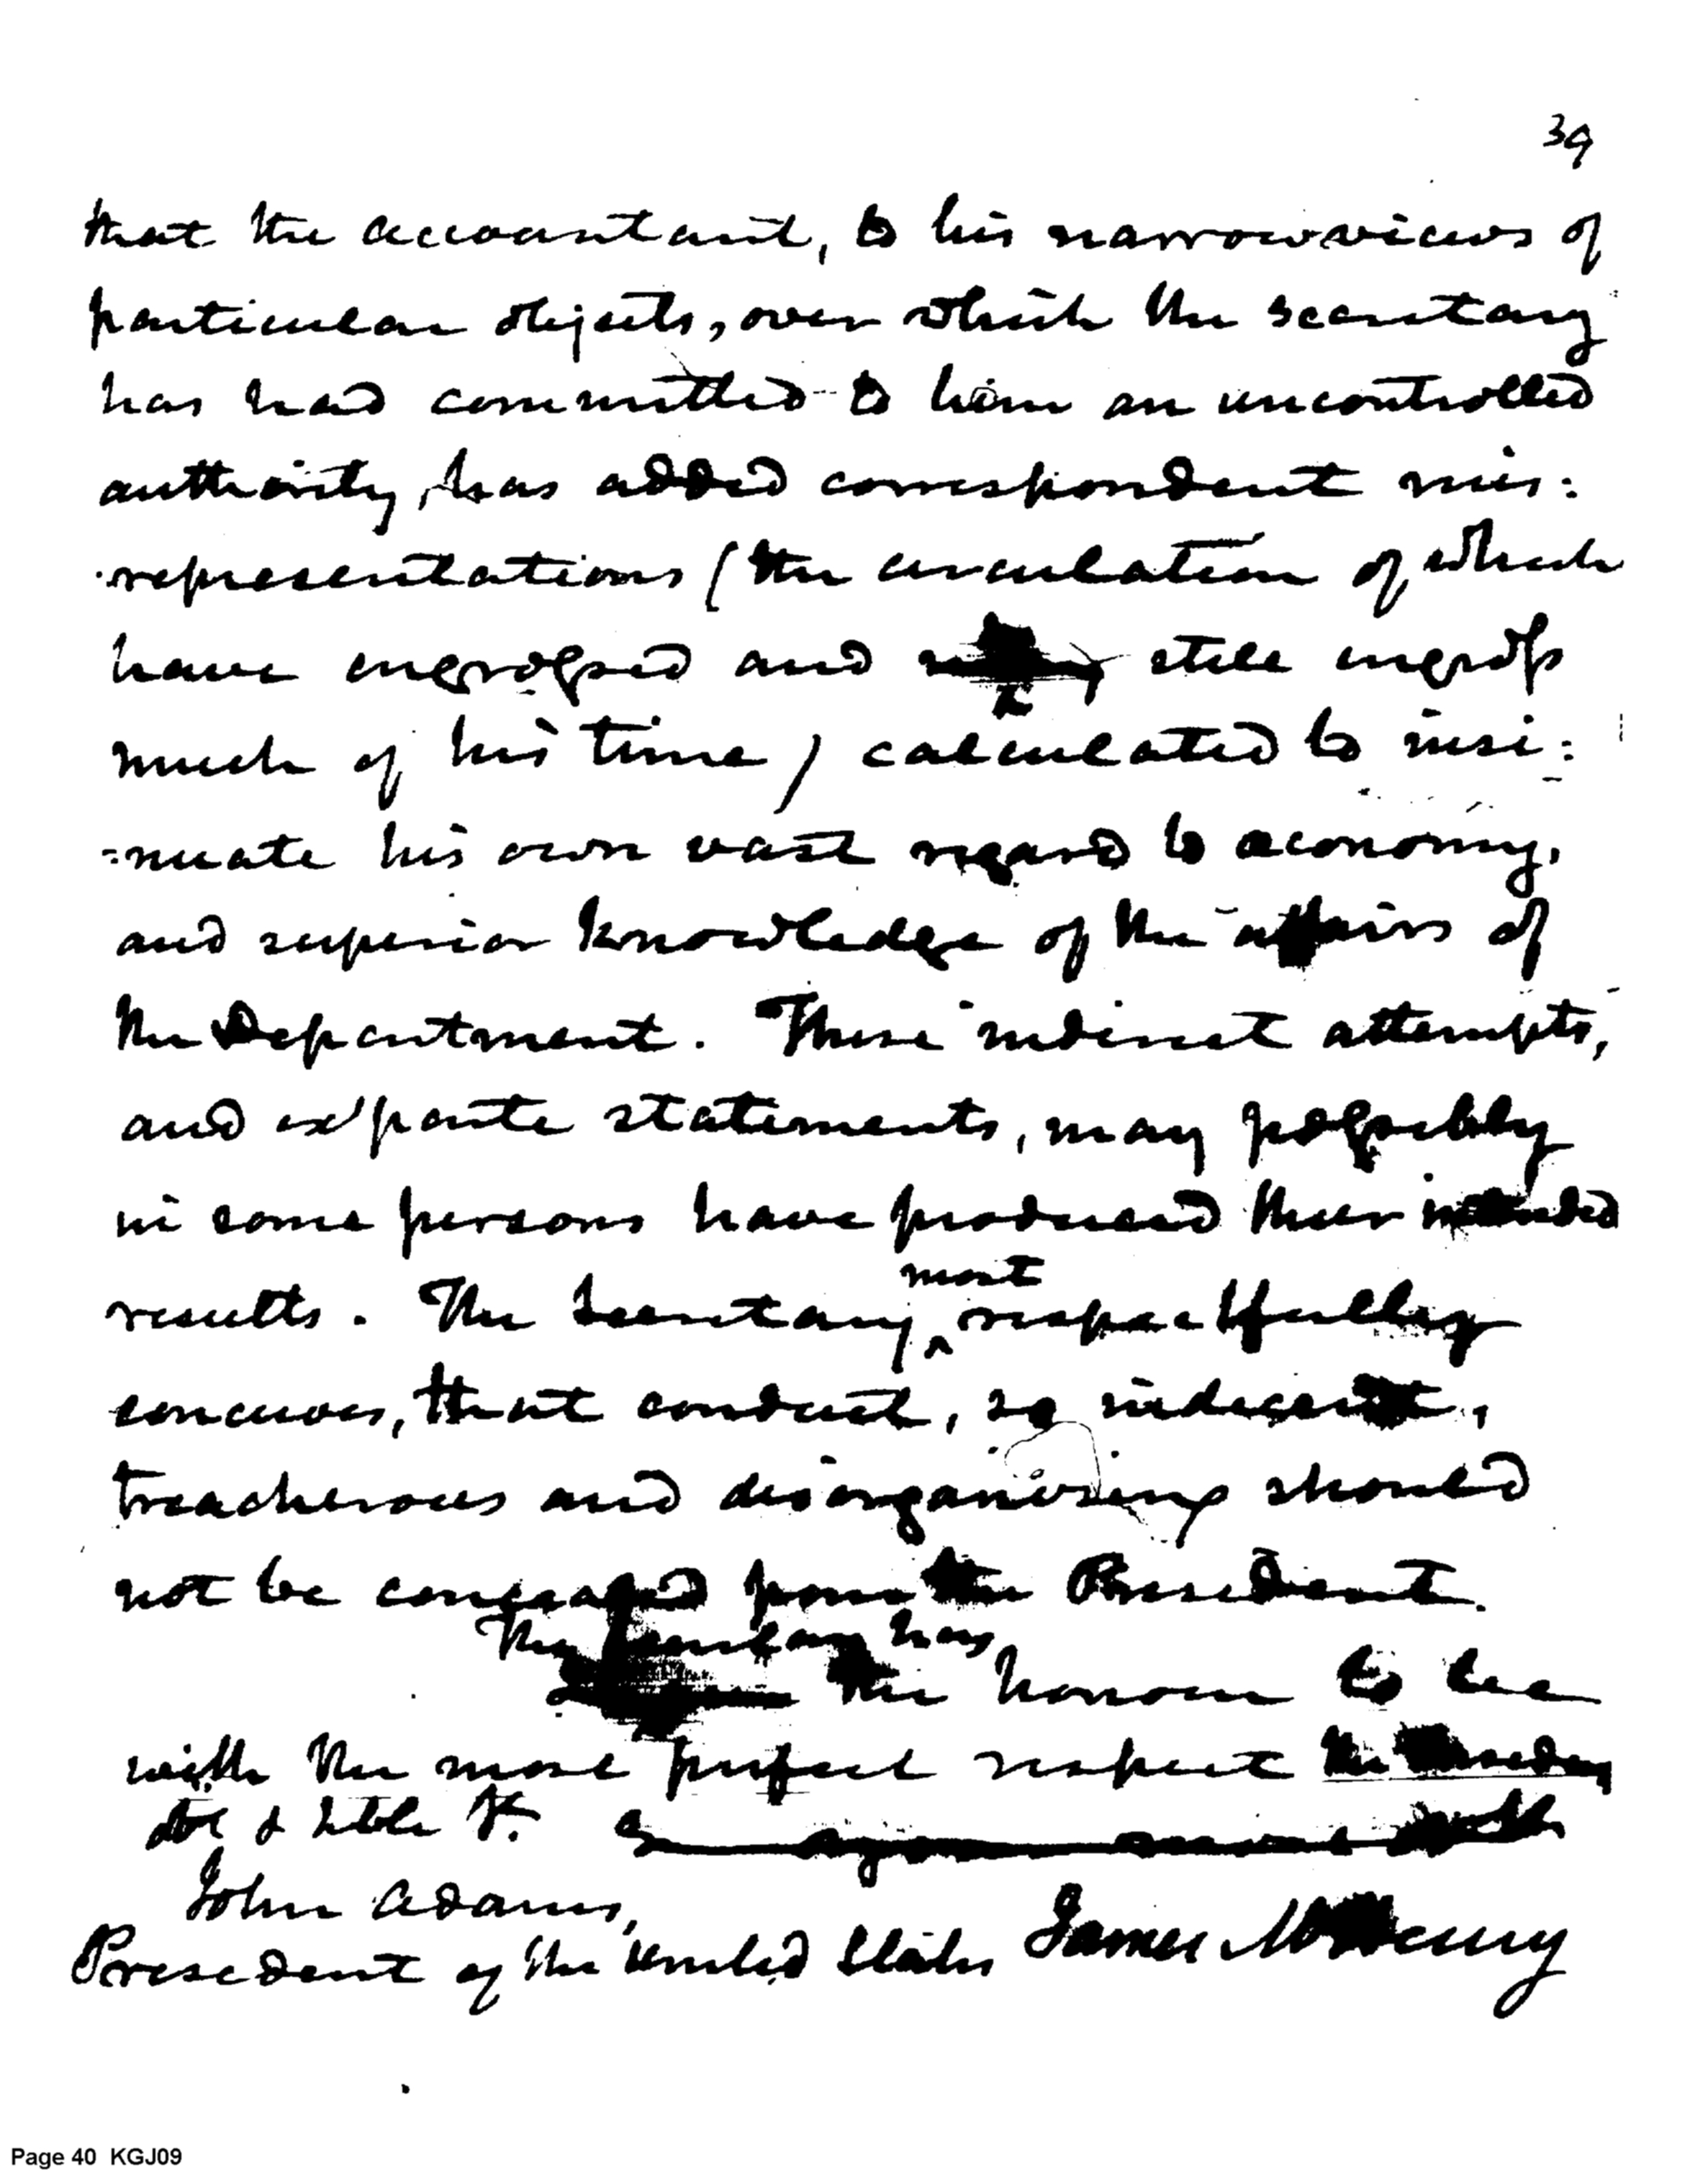 39
that the accountant, to his narrow views of
particular objects, over which the secretary
has had committed to him an uncontrolled
authority, has added correspondent mis:
representations (the circulation of which
have engrossed and still engross
much of his time) calculated to insi:
=nuate his own vast regard to œconomy,
and superior knowledge of the affairs of
the Department. These indirect attempts,
and ex'parte statements, may possibly
in some persons have produced their intended
results. The Secretary most respectfully
conceives, that conduct, so indecent,
treacherous and disorganising should
not be concealed from the President.
The Secretary has
the honour to be
with the most perfect respect the
John Adams,
President of the United States James McHenry
Page 40 KGJ09